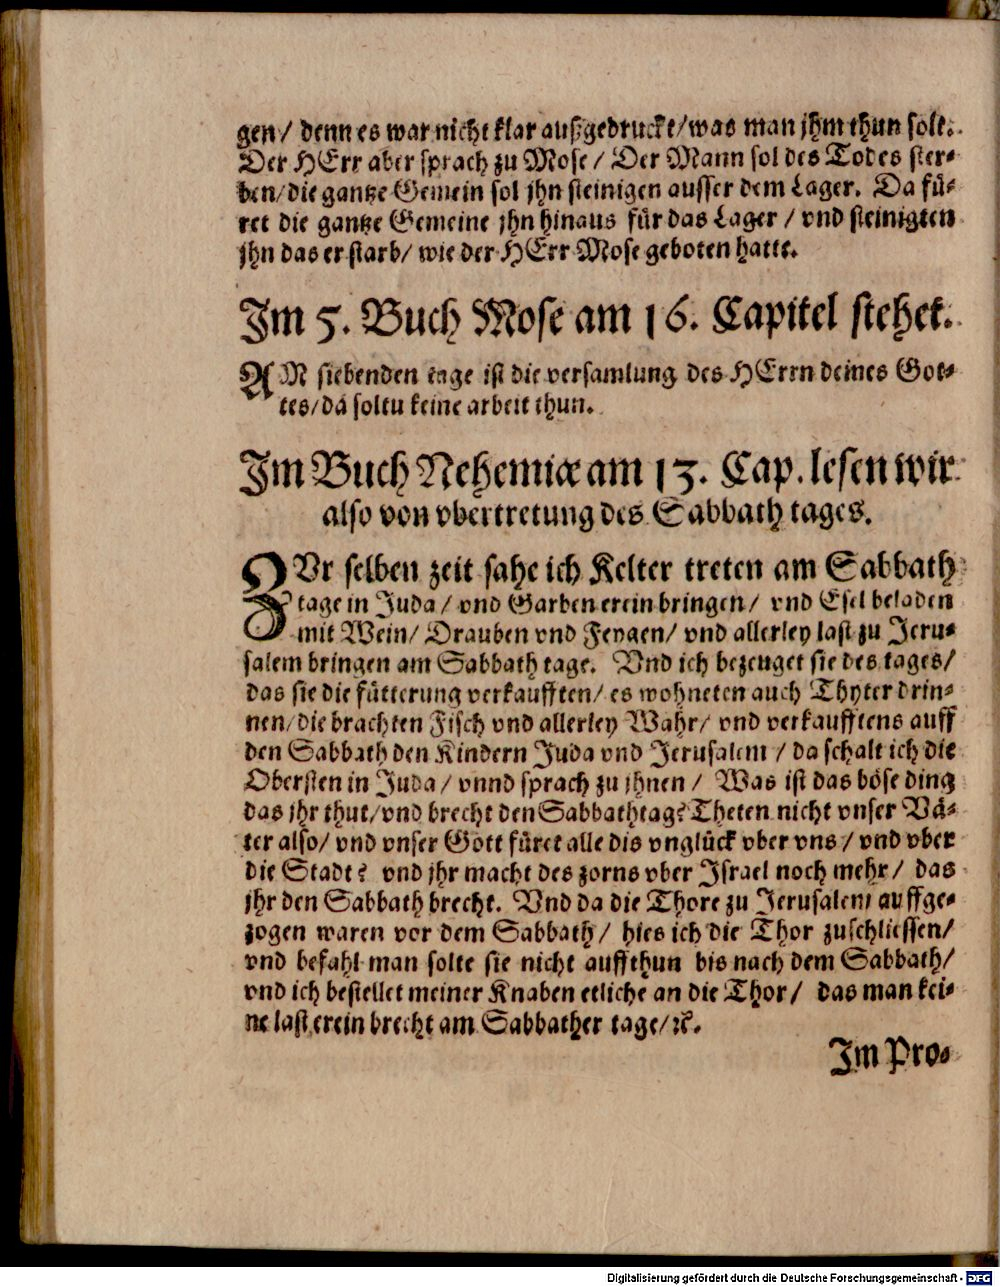 gen/ denn es war nicht klar außgedruckt/was man jhm thun solt.
Der HErr aber sprach zu Mose / Der Mann sol des Todes ster-
ben/die gantze Gemein sol jhn steinigen ausser dem Lager. Da fü-
ret die gantze Gemeine jhn hinaus für das Lager / vnd steinigten
jhn das er starb/ wie der HErr Mose geboten hatte.
Im 5. Buch Mose am 16. Capitel stehet.
AM siebenden tage ist die versamlung des HErrn deines Got-
tes/da soltu keine arbeit thun.
Im Buch Nehemiæ am 13. Cap. lesen wir
also von vbertretung des Sabbath tages.
ZVr selben zeit sahe ich Kelter treten am Sabbath
tage in Juda / vnd Garben erein bringen/ vnd Esel beladen
mit Wein/ Drauben vnd Feygen/ vnd allerley last zu Jeru-
salem bringen am Sabbath tage. Vnd ich bezeuget sie des tages/
das sie die fütterung verkaufften/ es wohneten auch Thyter drin-
nen/die brachten Fisch vnd allerley Wahr/ vnd verkaufftens auff
den Sabbath den Kindern Juda vnd Jerusalem / da schalt ich die
Obersten in Juda / vnnd sprach zu jhnen / Was ist das böse ding
das jhr thut/vnd brecht den Sabbathtag? Theten nicht vnser Vä-
ter also/ vnd vnser Gott füret alle dis vnglück vber vns / vnd vber
die Stadt? vnd jhr macht des zorns vber Israel noch mehr/ das
jhr den Sabbath brecht. Vnd da die Thore zu Jerusalem auffge-
zogen waren vor dem Sabbath/ hies ich die Thor zuschliessen/
vnd befahl man solte sie nicht auffthun bis nach dem Sabbath/
vnd ich bestellet meiner Knaben etliche an die Thor/ das man kei-
ne last erein brecht am Sabbather tage/ꝛc.
Im Pro-
Digitalisierung gefördert durch die Deutsche Forschungsgemeinschaft - DFG